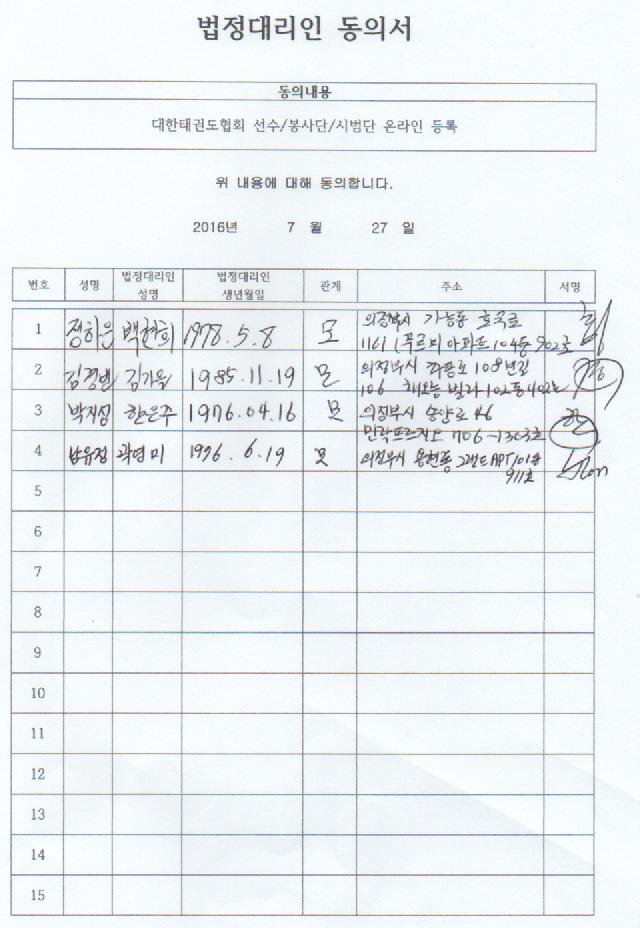 법정대리인 동의서
동의내용
대한태권도협회 선수/봉사단/시범단 온라인 등록
위 내용에 대해 동의합니다.
2016년 7 월 27 일
번호 성명 법정대리인 성명 법정대리인 생년월일 관계 주소 서명
1 정하윤 백현희 1978.5.8 모 의정부시 가능동 호국로
1161 (푸르지 아파트 104동 902호
2 김경빈 김가을 1985.11.19 모 의정부시 108번길
106 빌라 102동 402호
3 박지성 한은주 1976.04.16 모 의정부시 송양로 46
민락푸르지오 706-1303호
4 유정 곽영미 1976.6.19 모 의정부시 용현동 APT 101동
911호
5
6
7
8
9
10
11
12
13
14
15